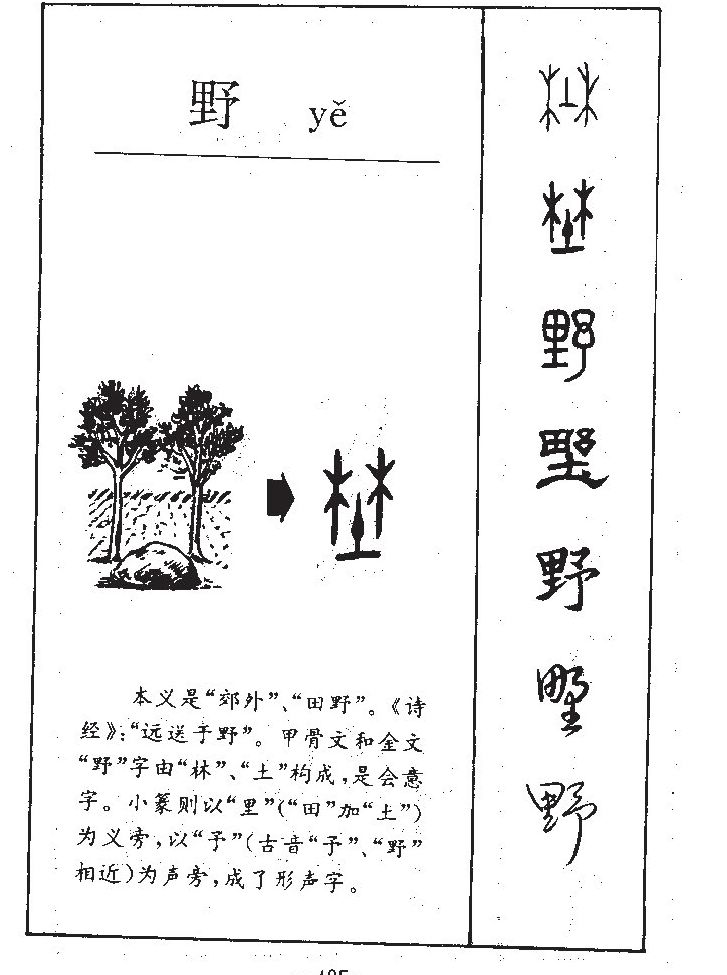 野 yě
本义是“郊外”、“田野”。《诗
经》：“远送于野”。甲骨文和金文
“野”字由“林”、“土”构成，是会意
字。小篆则以“里”（“田”加“土”）
为义旁，以“予”（古音“予”、“野”
相近）为声旁，成了形声字。
埜
埜
野
墅
野
野